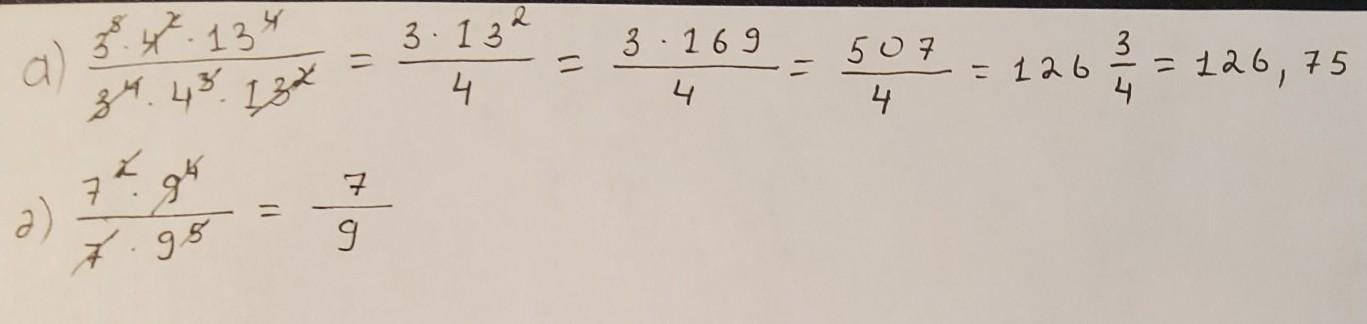 а) (3⁵ · 4² · 13⁴) / (3⁴ · 4³ · 13²) = (3 · 13²) / 4 = (3 · 169) / 4 = 507 / 4 = 126 3/4 = 126,75
д) (7² · 9⁴) / (7 · 9⁵) = 7 / 9